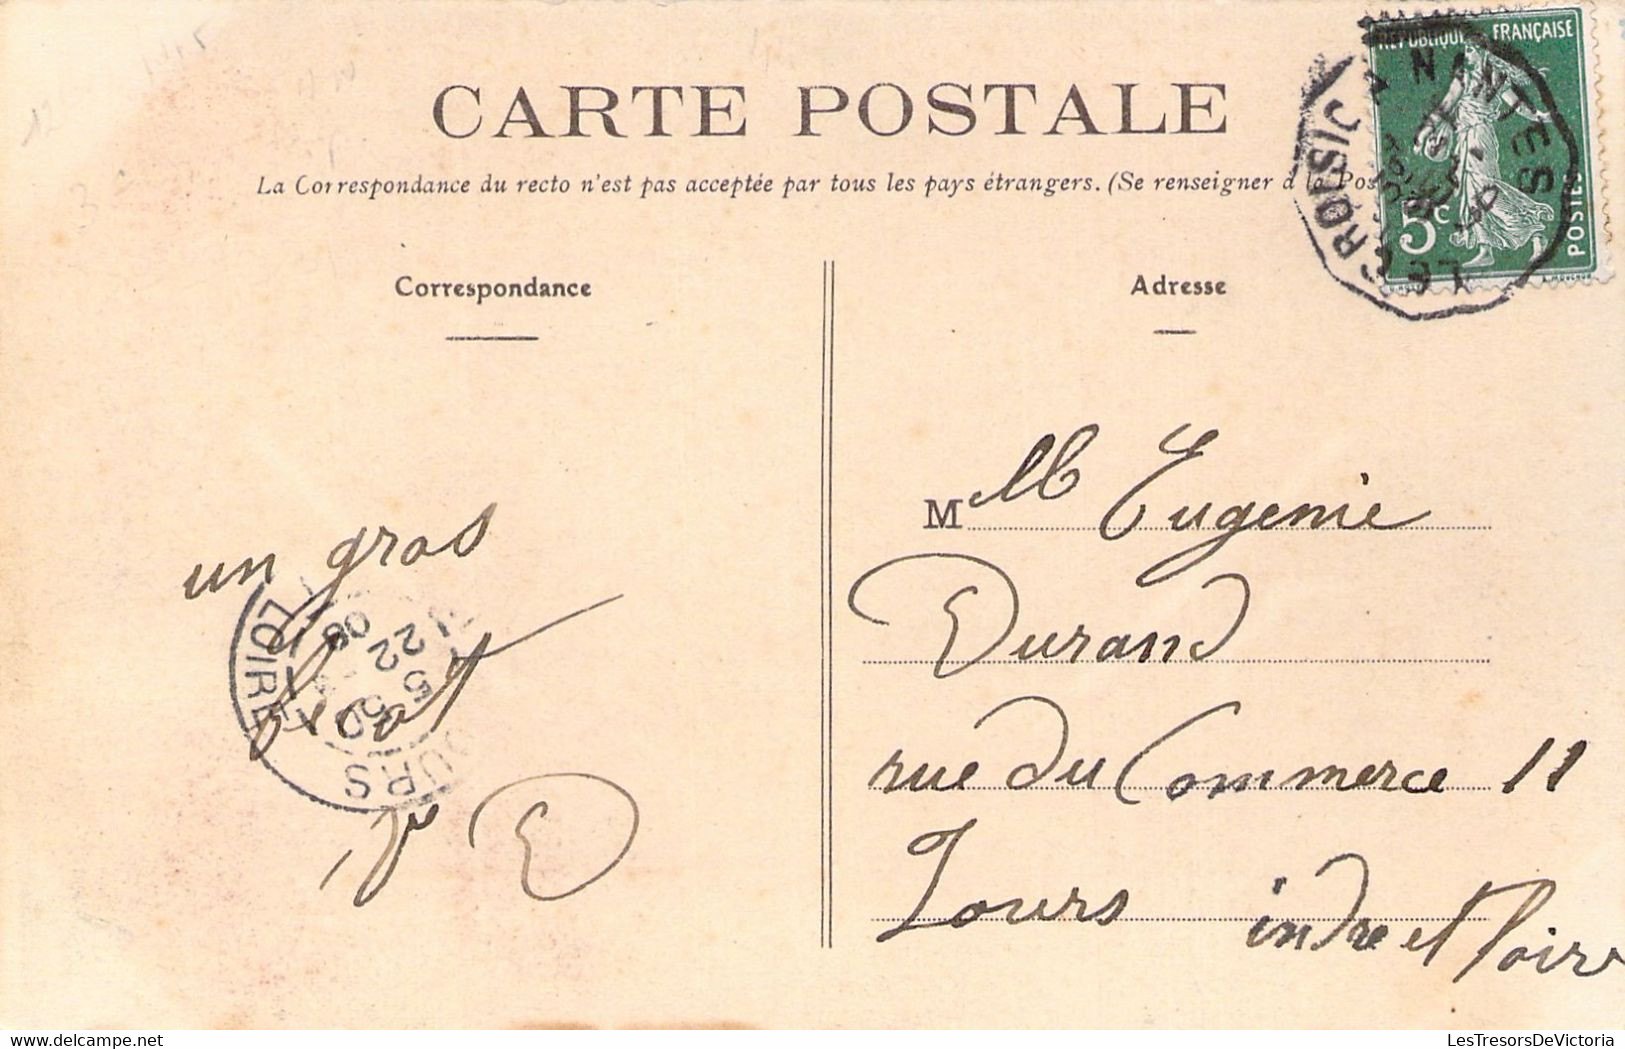 CARTE POSTALE
La Correspondance du recto n'est pas acceptée par tous les pays étrangers. (Se renseigner à la Pos
Correspondance
Adresse
REPUBLIQUE FRANÇAISE
5c
POSTES
LE CROISIC A NANTES
un gros
TOURS
LOIRE
22
5
M lle Eugenie
Durand
rue du Commerce 11
Tours indre et Loire
LesTresorsDeVictoria